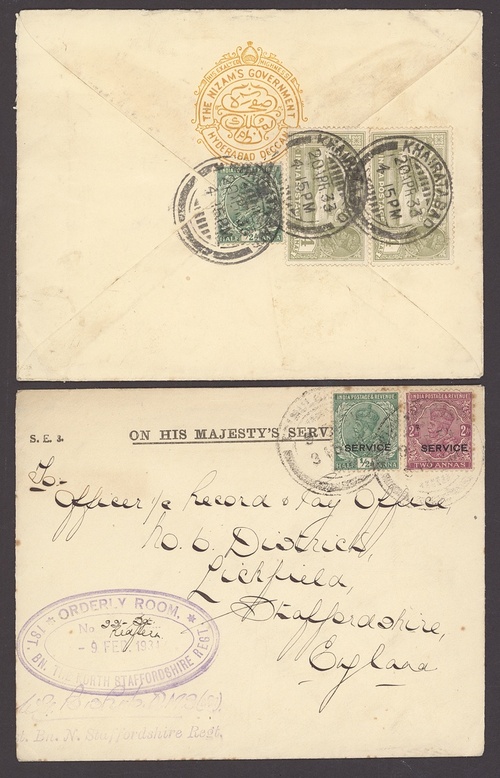 HIS EXALTED HIGHNESS
THE NIZAM'S GOVERNMENT
HYDERABAD DECCAN
KHAIRATABAD
20 APR. 33
4.15 PM
KHAIRATABAD
20 APR. 33
4.15 PM
4.15 PM
HALF
1
S. E. 3.
ON HIS MAJESTY'S SERV
INDIA POSTAGE & REVENUE
SERVICE
1/2 A
HALF ANNA
INDIA POSTAGE & REVENUE
SERVICE
2 As
TWO ANNAS
To-
Officer i/c Record & Pay Office,
No. 6 District,
Lichfield,
Staffordshire,
England
ORDERLY ROOM.
No.
- 9 FEB 1931
1ST. BN. THE NORTH STAFFORDSHIRE REGT.
Bn. N. Staffordshire Regt.